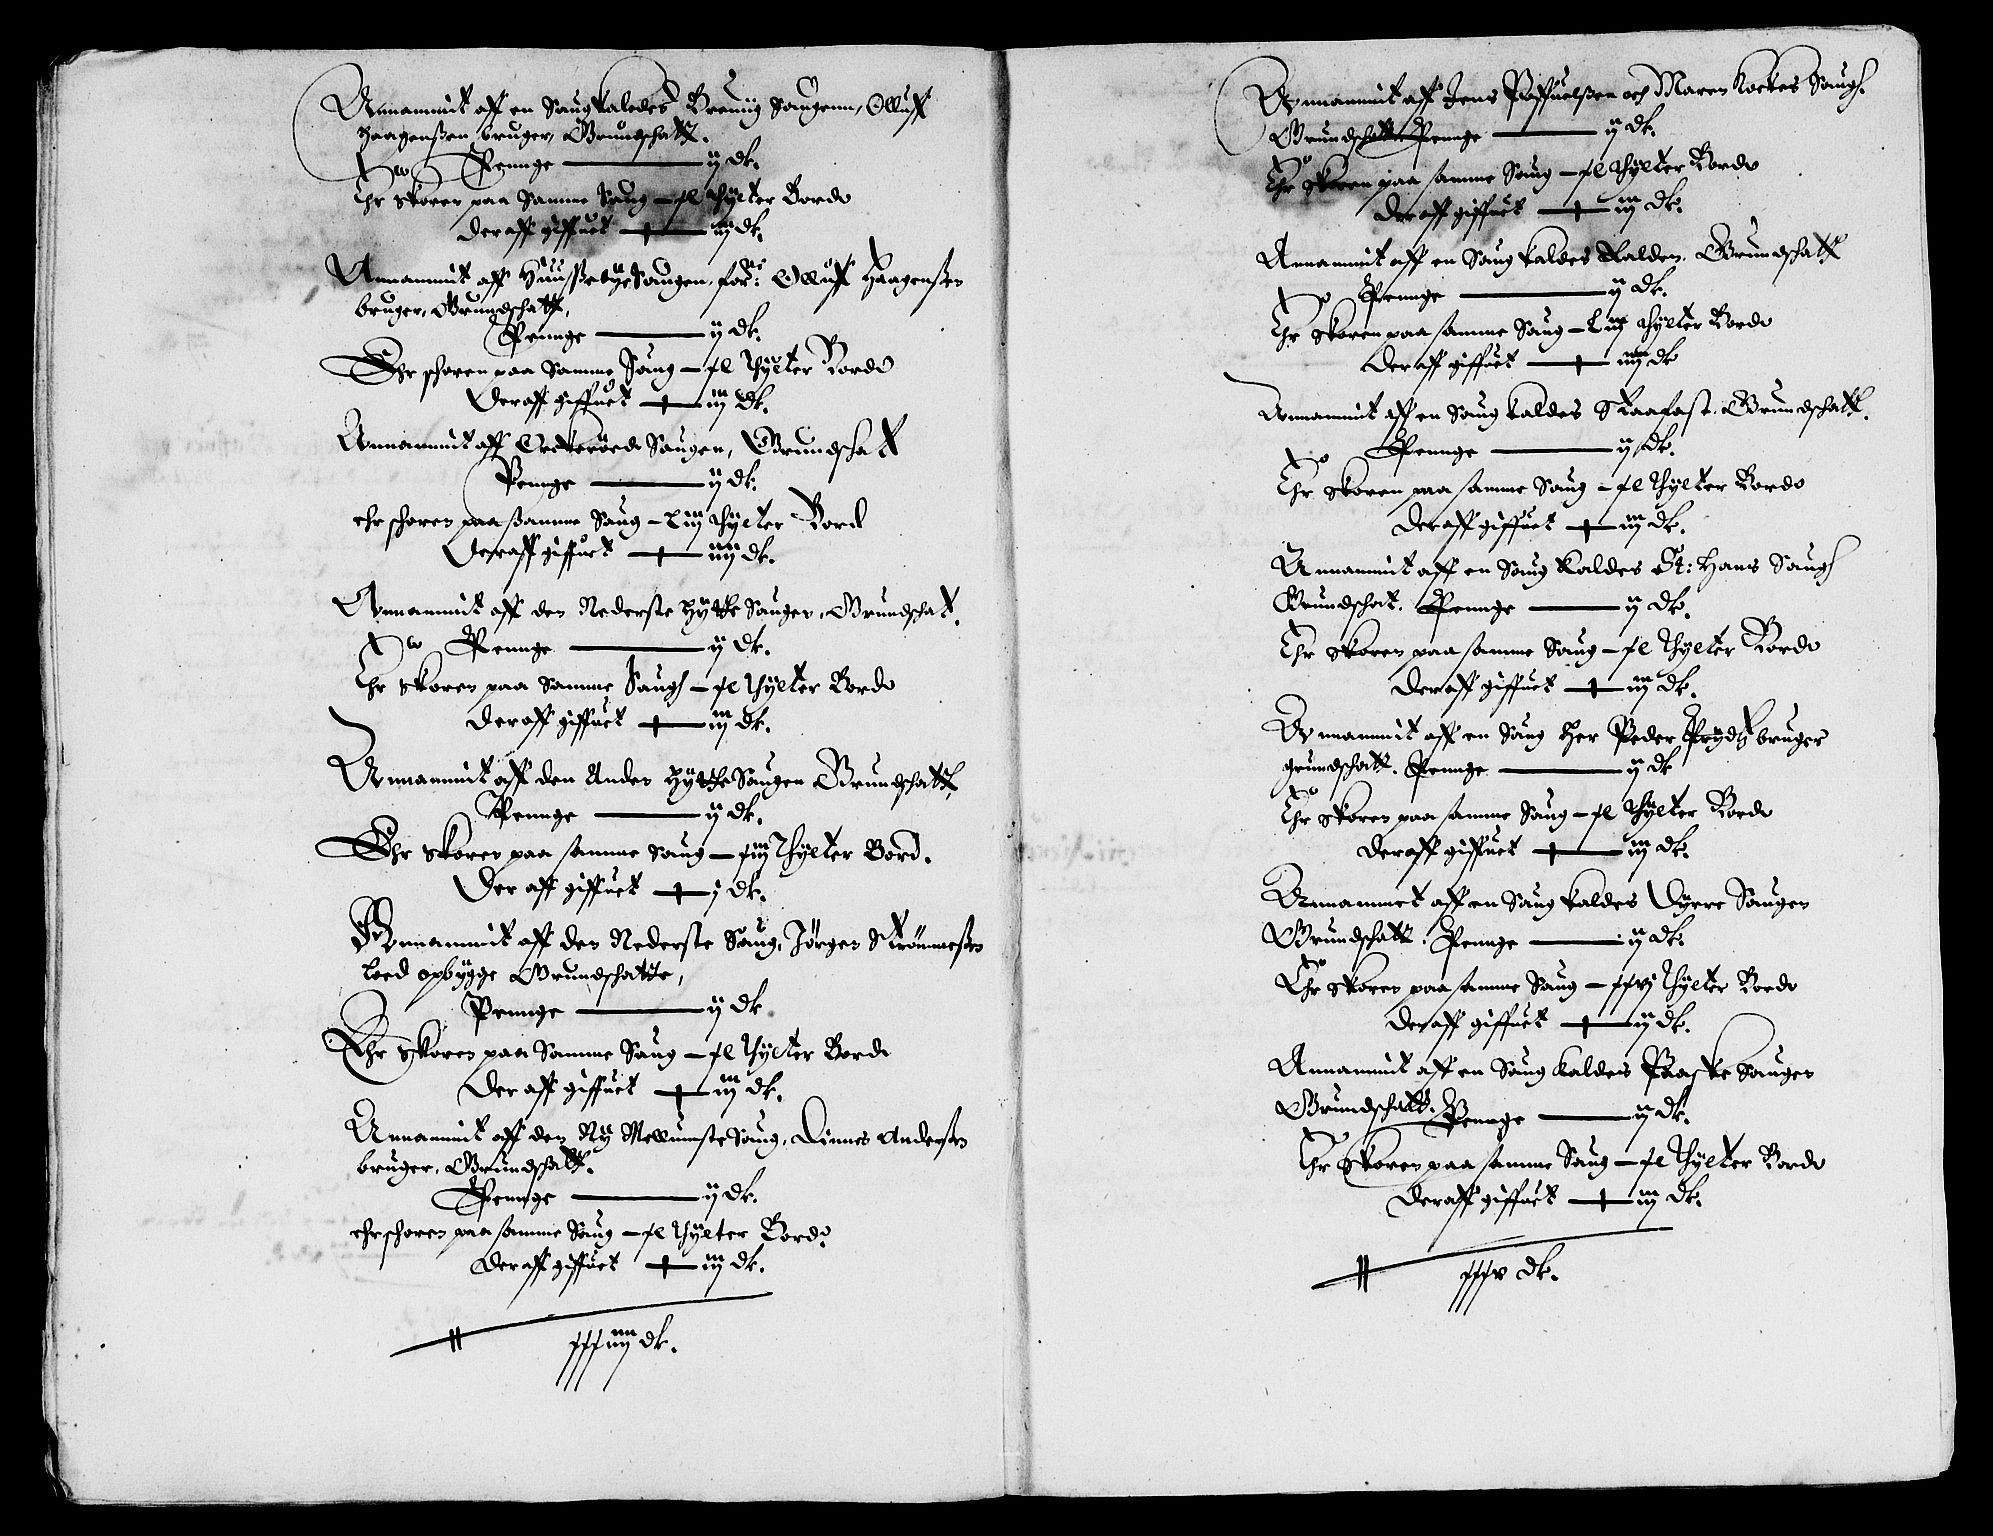 Annammit aff en Saug kaledes Brennig Saugenn, Olluff
Haagenßen bruger, Grundschatt.
Penge ij dlr.
Ehr skoren paa Samme Saug - xl thÿlter Bordt
deraff giffuet iij dlr.
Annammit aff Huußebye Saugen, for: Olluff Haagenßen
bruger, Grundschatt,
Penge ij dlr.
Ehr schoren paa Samme Saug - xl thÿlter Bordt
deraff giffuet iij dlr.
Annammit aff Saugen, Grundschatt
Penge ij dlr.
ehr schoren paa ßamme Saug - Liij thÿlter Bord
deraff giffuet iiij dlr.
Annammit aff den Nederste Hÿtte Saugen, Grundschat.
Penge ij dlr.
Ehr skoren paa Samme Saug - xl thÿlter Bordt
deraff giffuet iij dlr.
Annammit aff den Anden Hÿtthe Saugen Grundschatt,
Penge ij dlr.
Ehr skoren paa samme saug - xiij thÿlter Bord.
der aff giffuet j dlr.
Annammit aff den Nederste Saug, Jörgen Strönneßen
loed opbÿgge Grundschatte,
Penge ij dlr
Ehr Skoren paa Samme Saug - xl thÿlter Bordt
der aff giffuet iij dlr.
Annammit aff den Nÿ Mellumste Saug, Anderßen
bruger, Grundschatt.
Penge ij dlr.
ehr schoren paa samme Saug - xl thÿlter Bordt.
der aff giffuet iij dlr.
xxxiiij dlr.
Annammit aff Jens Poffuelßen och Maren Kockes Saug.
Grundschatt Penge ij dlr.
Ehr skoren paa samme Saug - xl thÿlter Bordt
deraff giffuet iij dlr.
Annammit aff en Saug kaldes Grundschatt
Penge ij dlr.
Ehr skoren paa samme Saug - Liij thÿlter Bordt
deraff giffuet iiij dlr
Annammit aff en Saug kaldes Grundschatt.
Penge ij dlr.
Ehr skoren paa samme Saug - xl thÿlter Bordt
deraff giffuet iij dlr.
Annammit aff en Saug kaldes St: Hans Saug
Grundschat. Penge ij dlr.
Ehr skoren paa samme Saug - xl thÿlter Bordt
deraff giffuet iij dlr.
Annammit aff en Saug Her Peder Prÿdtz bruger
grundschatt. Penge ij dlr
Ehr skoren paa samme Saug - xl thÿlter Bordt
deraff giffuet iij dlr.
Annammet aff en Saug kaldes Dÿrre Saugen
Grundschatt. Penge ij dlr.
Ehr skoren paa samme Saug - xxvj thÿlter Bordt
deraff giffuet ij dlr.
Annammit aff en Saug kaldes Paaske Saugen
Grundschatt. Penge ij dlr.
Ehr skoren paa samme Saug - xl thÿlter Bordt
deraff giffuet iij dlr.
xxxv dlr.